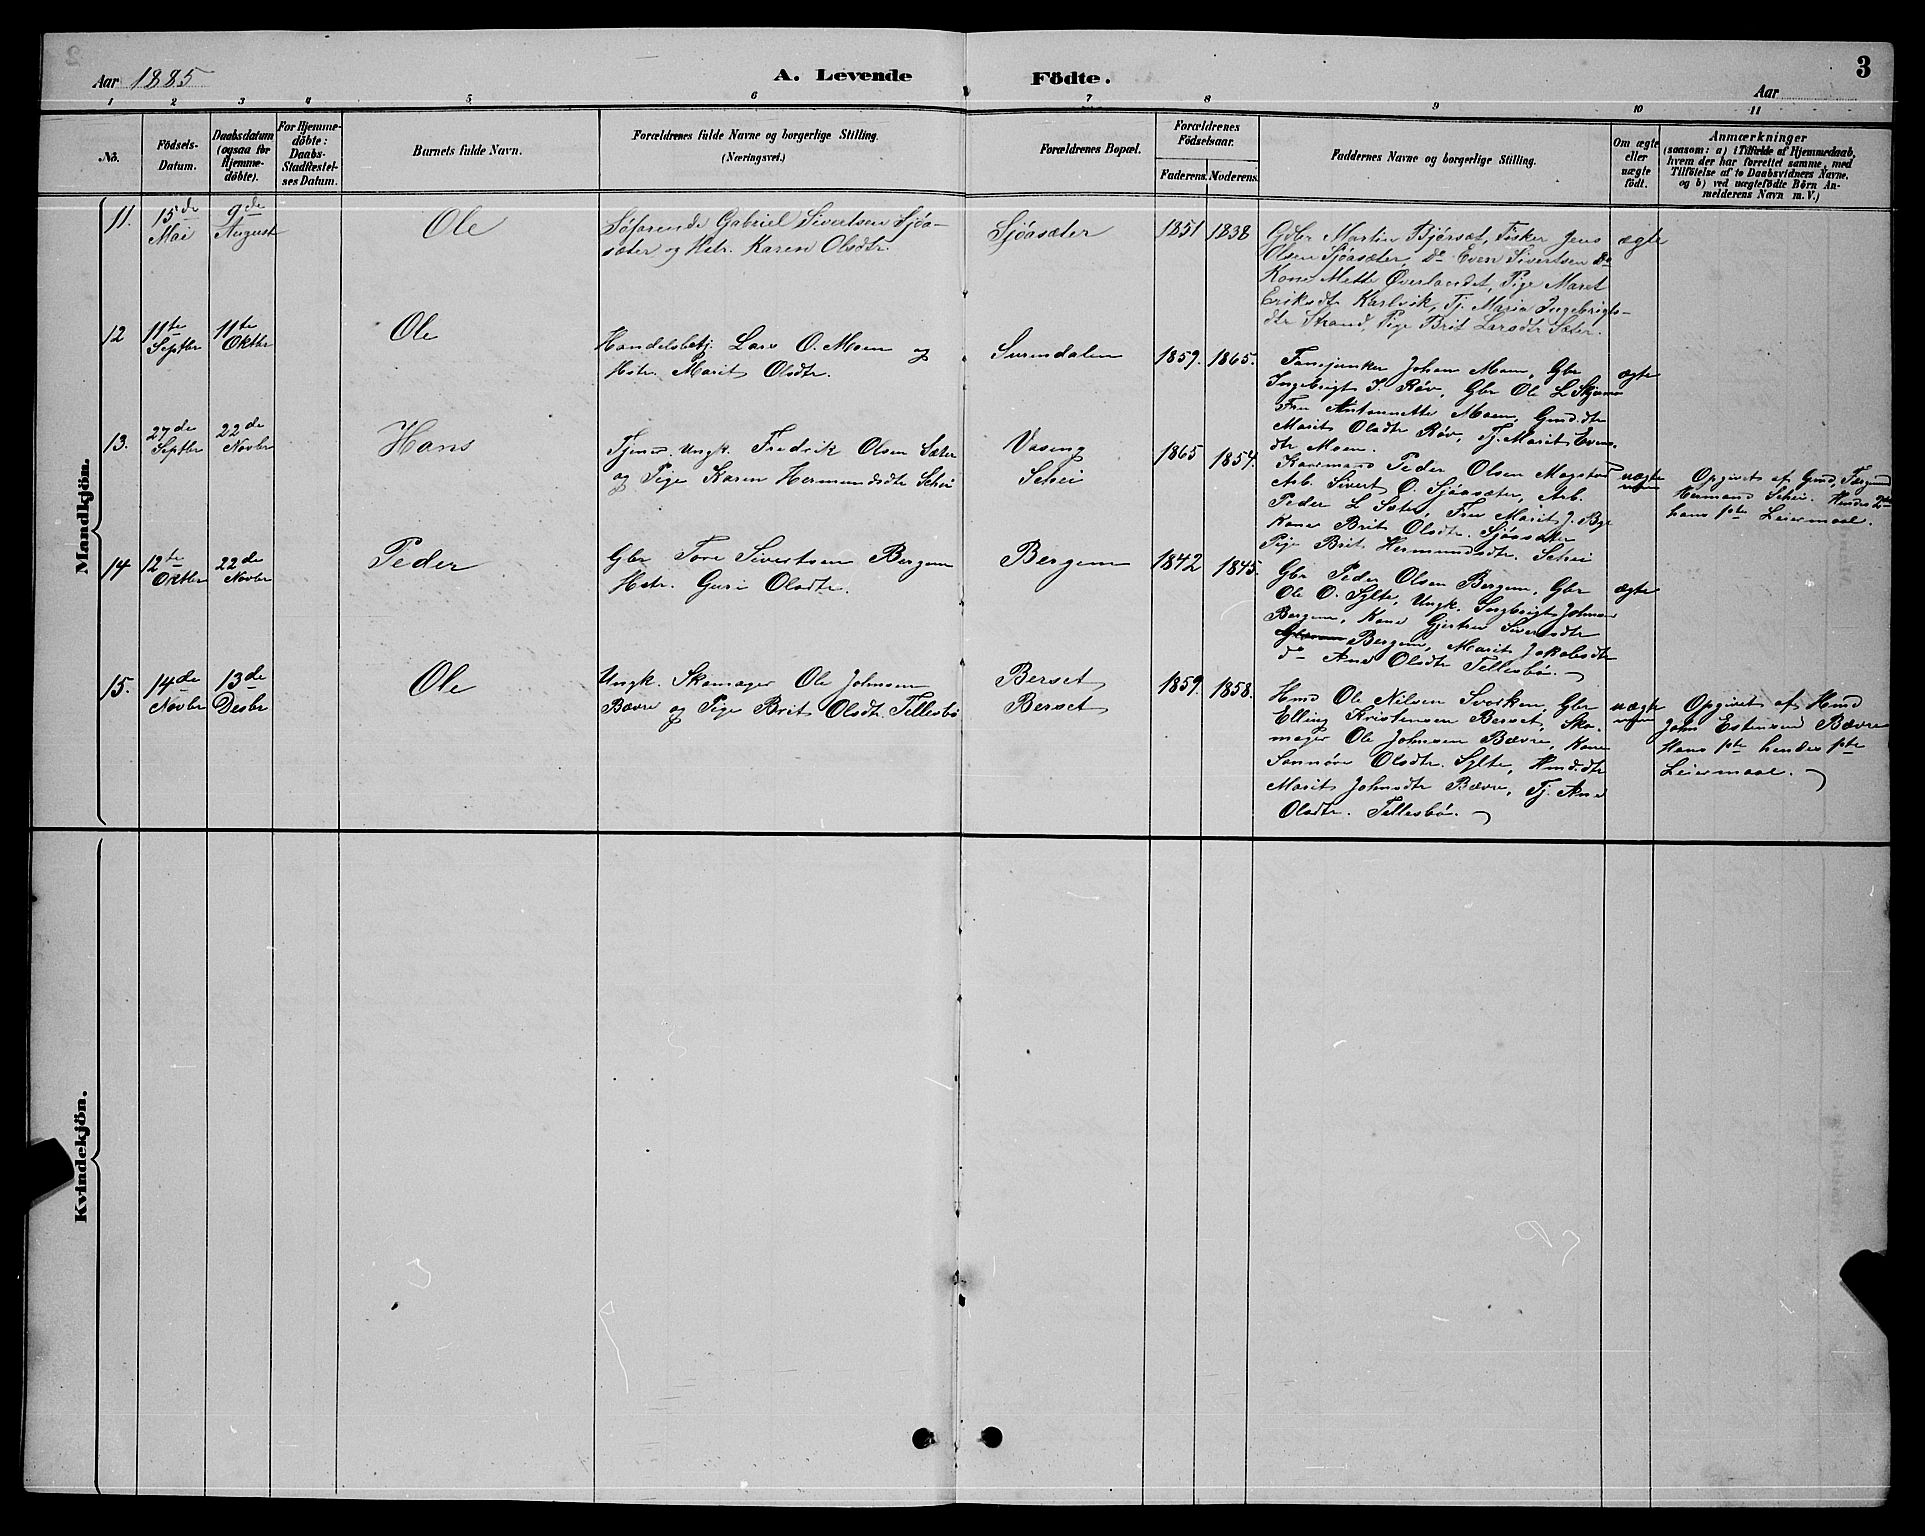 Aar 1885
A. Levende
Födte.
3
Aar
1 2 3 4 5 6 7 8 9 10 11
No.
Födsels-
Datum.
Daabsdatum
(ogsaa for
Hjemme-
döbte).
For Hjemme-
döbte:
Daabs-
Stadfæstel-
ses Datum.
Barnets fulde Navn.
Forældrenes fulde Navne og borgerlige Stilling.
(Næringsvei.)
Forældrenes Bopæl.
Forældrenes
Födselsaar.
Faderens.
Moderens.
Faddernes Navne og borgerlige Stilling.
Om ægte
eller
uægte
födt.
Anmærkninger
(saasom: a) i Tilfælde af Hjemmedaab,
hvem der har forrettet samme, med
Tilföielse af to Daabsvidners Navne,
og b) ved uægtefödte Börn An-
melderens Navn m. V.)
Mandkjön.
11.
15de
Mai
9de
August
Ole
Søfarende Gabriel Sivertsen Sjøa-
sæter og Hstr. Karen Olsdtr.
Sjøasæter
1851
1838
Gbr Martin Bjørsæt, Fisker Jens
Olsen Sjøasæter, do Even Sivertsen do
Kone Mette Øverlandet, Pige Maret
Eriksdtr Karlsvik, Tj. Maria Ingebrigts-
dtr Strand, Pige Brit Larsdtr Sæter.
ægte
12
11te
Septbr
11te
Oktbr
Ole
Handelsbetj. Lars O. Moen og
Hstr. Marit Olsdtr.
Surendalen
1859.
1865.
Fanejunker Johan Moen, Gbr
Ingebrigt J. Røv, Gbr Ole L
Fru Antonnette Moen, Gmd.dtr
Marit Olsdtr Røv, Tj. Marit Evens-
dtr Moen.
ægte
13.
27de
Septbr
22de
Novbr
Hans
Tjener, Ungk. Fredrik Olsen Sæter
og Pige Karen Hermundsdtr Schei
Vaseng
Schei
1865
1854.
Kaarmand Peder Olsen
Arb. Sivert O. Sjøasæter, Arb.
Peder L Sæter, Fru Marit J. Bye
Kone Brit Olsdtr. Sjøasæter
Pige Brit Hermundsdtr. Schei
uægte
Opgivet af Gmd.
Hermund Schei. Hendes 2det
hans 1ste Leiermaal.
14
12te
Oktbr
22de
Novbr
Peder
Gbr Tore Sivertsen Bergem
Hstr. Guri Olsdtr.
Bergem
1842
1845.
Gbr Peder Olsen Bergem, Gbr
Ole O. Sylte, Ungk. Ingebrigt Johnsen
Bergem, Kone Gjertru Sivertsdtr
Bergem, Marit Jakobsdtr
do Ane Olsdtr Tellesbø.
ægte
15.
14de
Novbr
13de
Desbr
Ole
Ungk. Skomager Ole Johnsen
Bævre og Pige Brit Olsdtr. Tellesbø
Berset
Berset
1859.
1858.
Hmd Ole Nilsen Svorken, Gbr
Elling Kristensen Berset, Sko-
mager Ole Johnsen Bævre, Kone
Sønnøve Olsdtr. Sylte, Hmd.dtr
Marit Johnsdtr Bævre, Tj. Ane
Olsdtr. Tellesbø.
uægte
Opgivet af Hmd
John Estensen Bævre
Hans 1ste hendes 1ste
Leiermaal.
Kvindekjön.